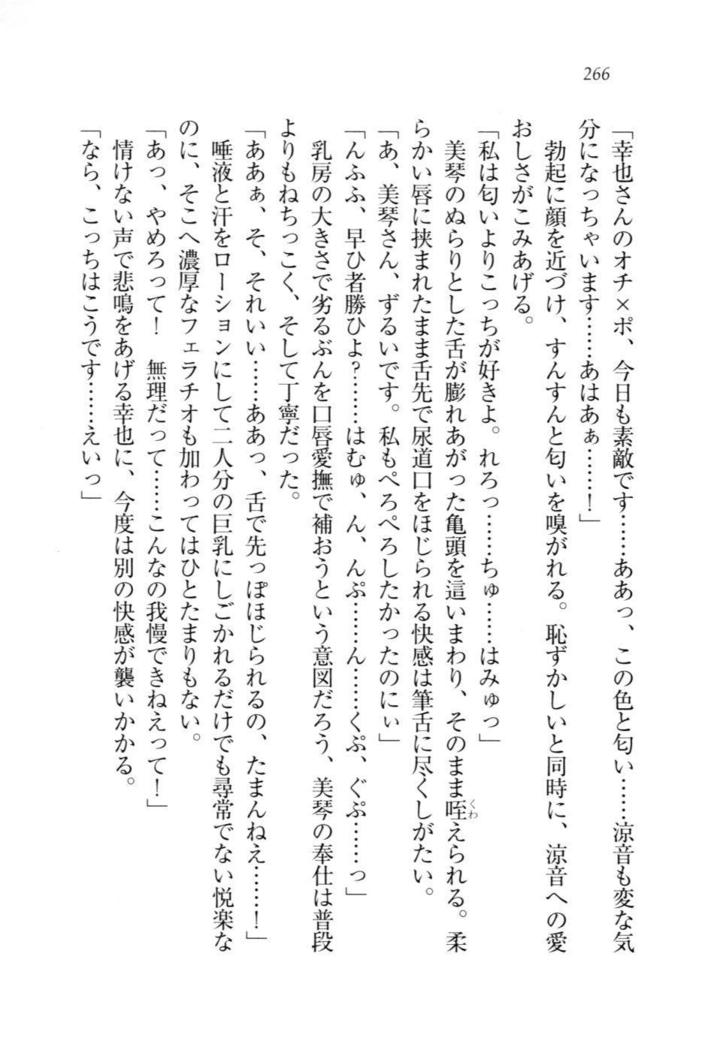 266
「幸也さんのオチ×ポ、今日も素敵です……ああっ、この色と匂い……涼音も変な気
分になっちゃいます……あはあぁ……！」
勃起に顔を近づけ、すんすんと匂いを嗅がれる。恥ずかしいと同時に、涼音への愛
おしさがこみあげる。
「私は匂いよりこっちが好きよ。れろっ……ちゅ……はみゅっ」
美琴のぬらりとした舌が膨れあがった亀頭を這いまわり、そのまま咥えられる。柔
くわ
らかい唇に挟まれたまま舌先で尿道口をほじられる快感は筆舌に尽くしがたい。
「あ、美琴さん、ずるいです。私もぺろぺろしたかったのにぃ」
「んふふ、早ひ者勝ひよ？……はむゅ、ん、んぷ……ん……くぷ、ぐぷ……っ」
乳房の大きさで劣るぶんを口唇愛撫で補おうという意図だろう、美琴の奉仕は普段
よりもねちっこく、そして丁寧だった。
「ああぁ、そ、それいい……ああっ、舌で先っぽほじられるの、たまんねえ……！」
唾液と汗をローションにして二人分の巨乳にしごかれるだけでも尋常でない悦楽な
のに、そこへ濃厚なフェラチオも加わってはひとたまりもない。
「あっ、やめろって！　無理だって……こんなの我慢できねえって！」
情けない声で悲鳴をあげる幸也に、今度は別の快感が襲いかかる。
「なら、こっちはこうです……えいっ」